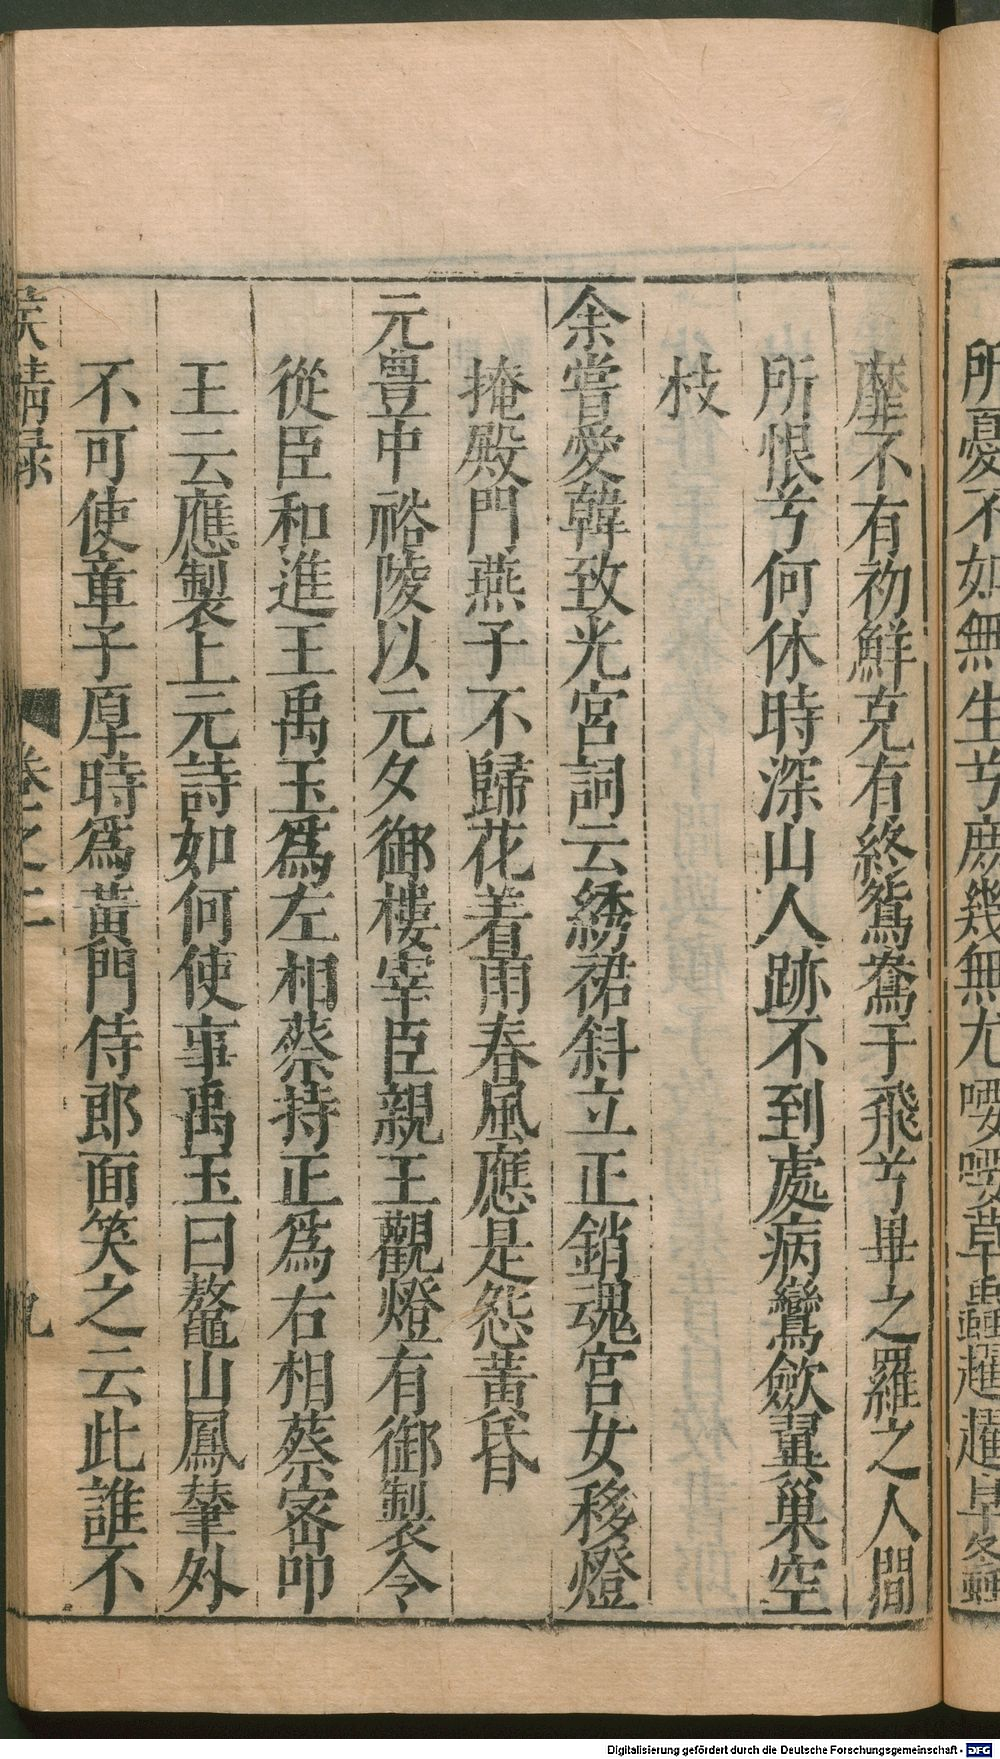 所憂不如無生兮庶幾無尤嚶嚶草蟲趯趯阜螽
靡不有初鮮克有終鴛鴦于飛兮畢之羅之人間
所恨兮何休時深山人跡不到處病鸞斂翼巢空
枝
余嘗愛韓致光宮詞云綉裙斜立正銷魂宮女移燈
掩殿門燕子不歸花着雨春風應是怨黃昏
元豊中裕陵以元夕御樓宰臣親王觀燈有御製令
從臣和進王禹玉爲左相蔡持正爲右相蔡密叩
王云應製上元詩如何使事禹玉曰鰲山鳳輦外
不可使章子厚時爲黃門侍郎面笑之云此誰不
侯鯖録 卷之二 九
Digitalisierung gefördert durch die Deutsche Forschungsgemeinschaft - DFG